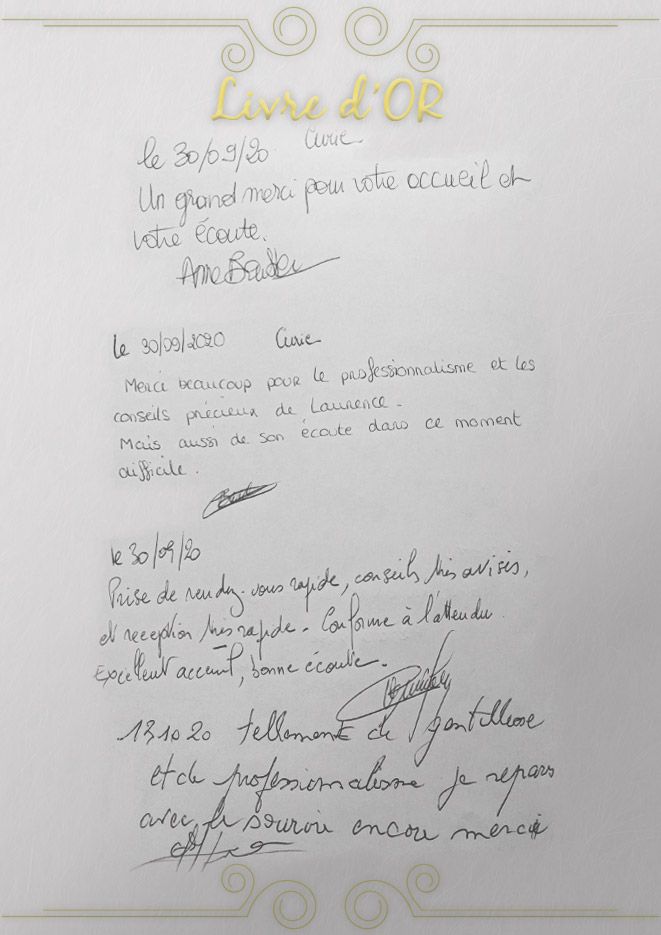 Livre d'OR
le 30/09/20 Curie
Un grand merci pour votre accueil et
votre écoute.
Anne
le 30/09/2020 Curie
Merci beaucoup pour le professionnalisme et les
conseils précieux de Laurence.
Mais aussi de son écoute dans ce moment
difficile.
le 30/09/20
Prise de rendez-vous rapide, conseils très avisés,
et reception très rapide. Conforme à l'attendu
Excellent accueil, bonne écoute.
13.10 20 tellement de gentillesse
et de professionnalisme je repars
avec le sourire encore merci